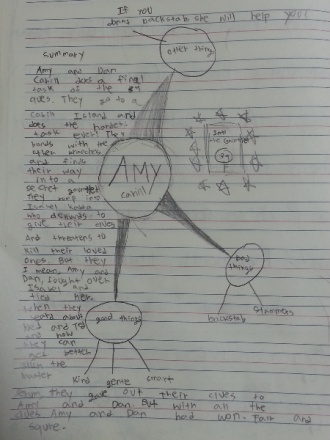 If you
donts backstab she will help you!
other thing
summary
Amy and Dan
Cahill does a final
task of the 39
clues. They go to a
cahill Island and
does the harder
task ever! They
bonds with the
other branches
and finds
their way
into a
secret
They
Isabel kabra
who demands to
give their clues
And threatens to
kill their loved
ones. But they
I mean, Amy and
Dan, fought over
Isabel and
tied her.
when they
bad and
and how
they can
get better
sign the
AMY
cahill
bad things
backstab
stammers
good things
kind genie smart
they gave out their clues to
Amy and Dan. But with all the
clues Amy and Dan had won. Fair and
square.